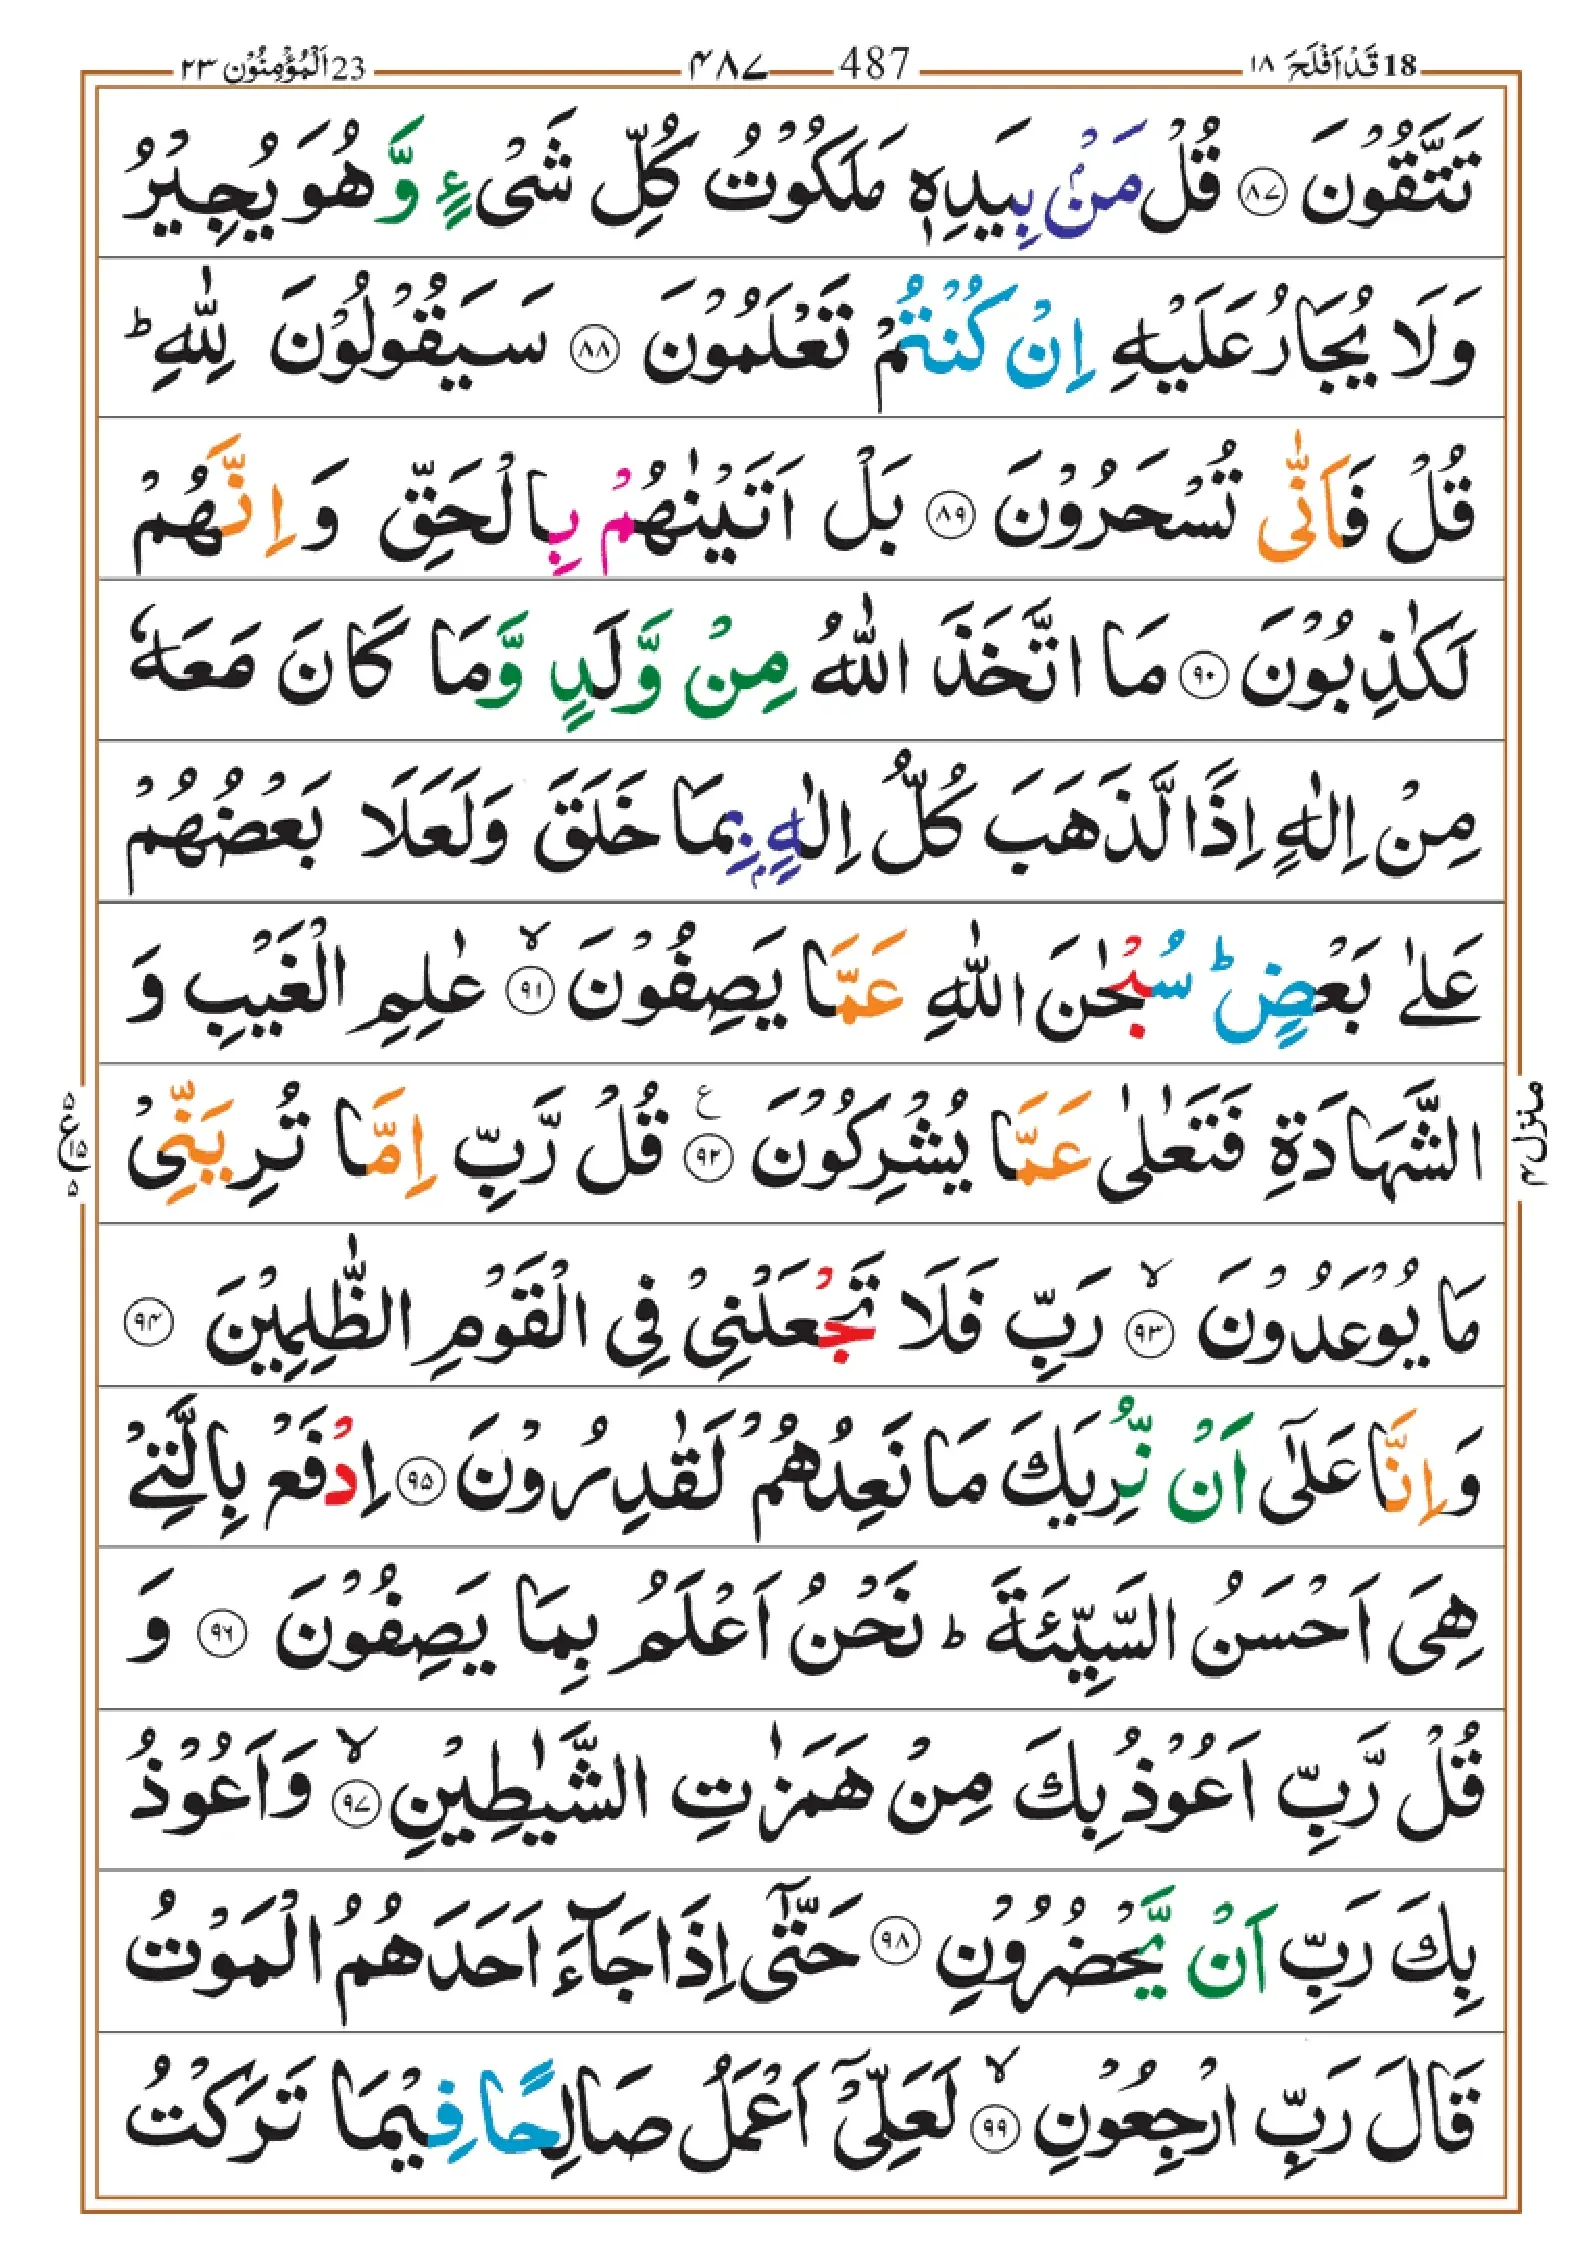 18 قَدْ اَفْلَحَ ۱۸ 487 ۴۸۷ 23 اَلْمُؤْمِنُوْن ۲۳
تَتَّقُوْنَ ۝۸۷ قُلْ مَنْۢ بِيَدِهٖ مَلَكُوْتُ كُلِّ شَىْءٍ وَّهُوَ يُجِيْرُ
وَلَا يُجَارُ عَلَيْهِ اِنْ كُنْتُمْ تَعْلَمُوْنَ ۝۸۸ سَيَقُوْلُوْنَ لِلّٰهِ ؕ
قُلْ فَاَنّٰى تُسْحَرُوْنَ ۝۸۹ بَلْ اَتَيْنٰهُمْ بِالْحَقِّ وَ اِنَّهُمْ
لَكٰذِبُوْنَ ۝۹۰ مَا اتَّخَذَ اللّٰهُ مِنْ وَّلَدٍ وَّمَا كَانَ مَعَهٗ
مِنْ اِلٰهٍ اِذًا لَّذَهَبَ كُلُّ اِلٰهٍۭ بِمَا خَلَقَ وَلَعَلَا بَعْضُهُمْ
عَلٰى بَعْضٍ ؕ سُبْحٰنَ اللّٰهِ عَمَّا يَصِفُوْنَ ۙ۝۹۱ عٰلِمِ الْغَيْبِ وَ
الشَّهَادَةِ فَتَعٰلٰى عَمَّا يُشْرِكُوْنَ ۝۹۲ ع قُلْ رَّبِّ اِمَّا تُرِيَنِّىْ
مَا يُوْعَدُوْنَ ۙ۝۹۳ رَبِّ فَلَا تَجْعَلْنِىْ فِى الْقَوْمِ الظّٰلِمِيْنَ ۝۹۴
وَاِنَّا عَلٰٓى اَنْ نُّرِيَكَ مَا نَعِدُهُمْ لَقٰدِرُوْنَ ۝۹۵ اِدْفَعْ بِالَّتِىْ
هِىَ اَحْسَنُ السَّيِّئَةَ ؕ نَحْنُ اَعْلَمُ بِمَا يَصِفُوْنَ ۝۹۶ وَ
قُلْ رَّبِّ اَعُوْذُ بِكَ مِنْ هَمَزٰتِ الشَّيٰطِيْنِ ۙ۝۹۷ وَاَعُوْذُ
بِكَ رَبِّ اَنْ يَّحْضُرُوْنِ ۝۹۸ حَتّٰٓى اِذَا جَآءَ اَحَدَهُمُ الْمَوْتُ
قَالَ رَبِّ ارْجِعُوْنِ ۙ۝۹۹ لَعَلِّىْٓ اَعْمَلُ صَالِحًا فِيْمَا تَرَكْتُ
منزل ۴
۵ ع ۱۵ ۵